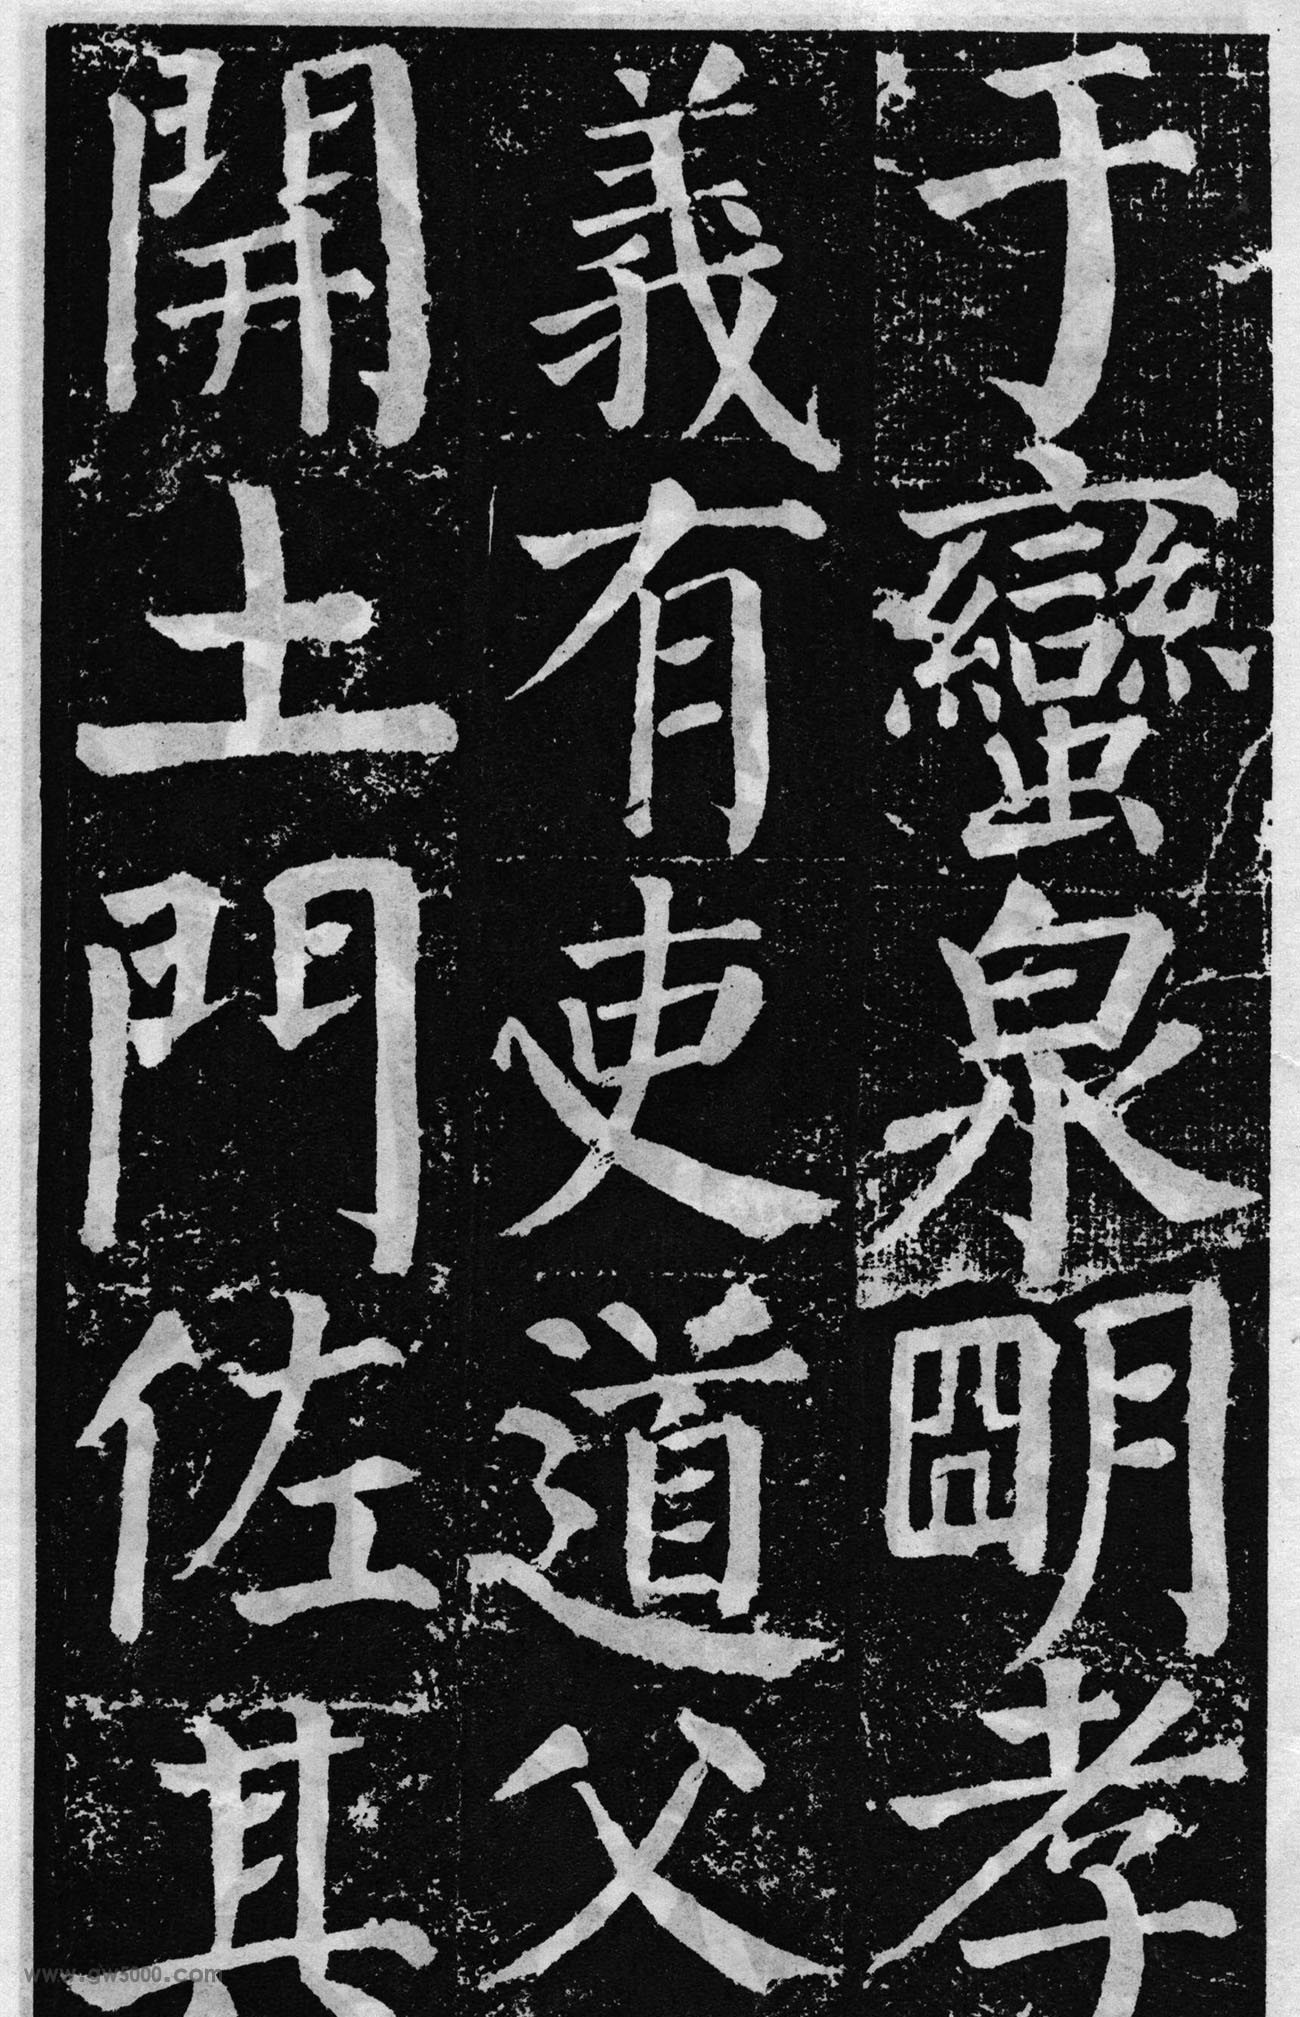 于蠻泉明孝
義有吏道父
開土門佐其
www.gw5000.com